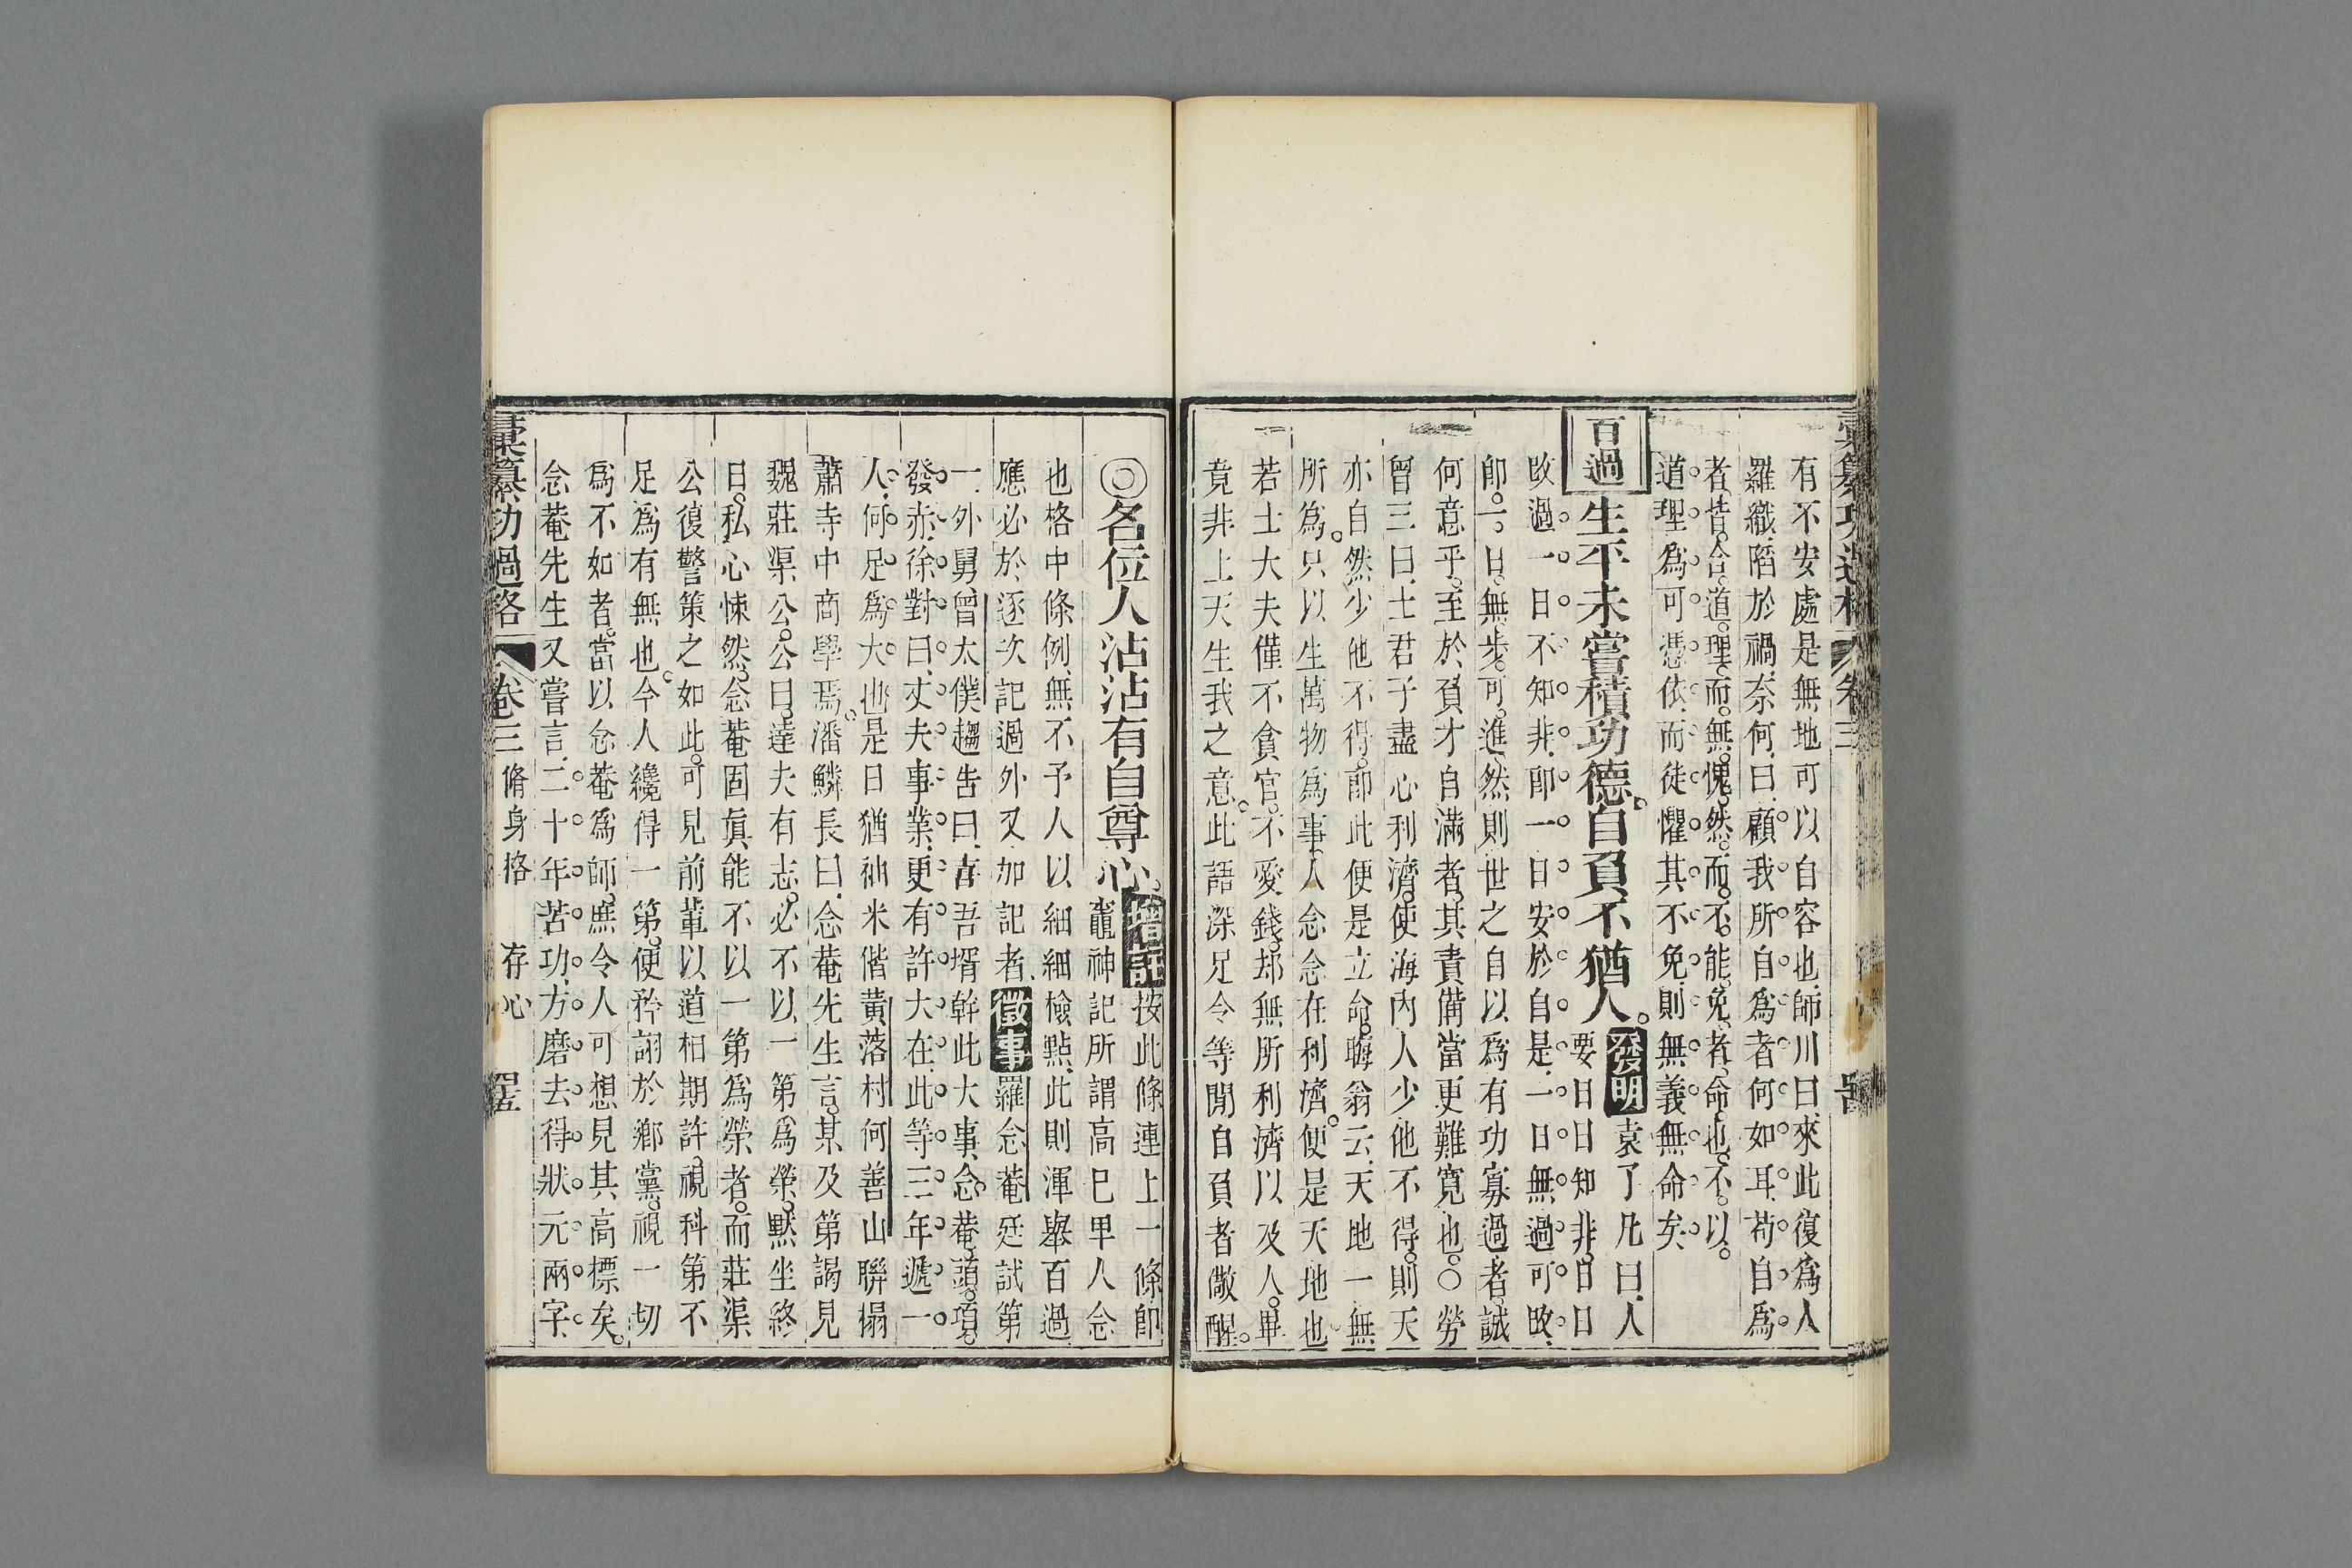 彙纂功過格 卷三
有不安處是無地可以自容也師川曰來此復爲人
羅織陷於禍奈何曰顧我所自爲者何如耳苟自爲
者皆合道理而無愧然而不能免者命也不以
道理爲可憑依而徒懼其不免則無義無命矣
百過 生平未嘗積功德自負不猶人 發明 袁了凡曰人
要日日知非日日
改過一日不知非卽一日安於自是一日無過可改
卽一日無步可進然則世之自以爲有功寡過者誠
何意乎至於負才自滿者其責備當更難寬也○勞
曾三曰士君子盡心利濟使海內人少他不得則天
亦自然少他不得卽此便是立命晦翁云天地一無
所爲只以生萬物爲事人念念在利濟便是天地也
若士大夫僅不貪官不愛錢却無所利濟以及人畢
竟非上天生我之意此語深足令等閒自負者儆醒
◎名位人沾沾有自尊心 增註 按此條連上一條卽
竈神記所謂高已卑人念
也格中條例無不予人以細細檢點此則渾舉百過
應必於逐次記過外又加記者 徵事 羅念菴廷試第
一外舅曾太僕趨告曰喜吾壻幹此大事念菴頭項
發赤徐對曰丈夫事業更有許大在此等三年遞一
人何足爲大也是日猶袖米偕黃落村何善山聯榻
蕭寺中商學焉潘鱗長曰念菴先生言某及第謁見
魏莊渠公公曰達夫有志必不以一第爲榮默坐終
日私心悚然念菴固眞能不以一第爲榮者而莊渠
公復警策之如此可見前輩以道相期許視科第不
足爲有無也今人纔得一第便矜詡於鄉黨視一切
爲不如者當以念菴爲師庶令人可想見其高標矣
念菴先生又嘗言二十年苦功方磨去得狀元兩字
彙纂功過格 卷三 脩身格 存心 四五